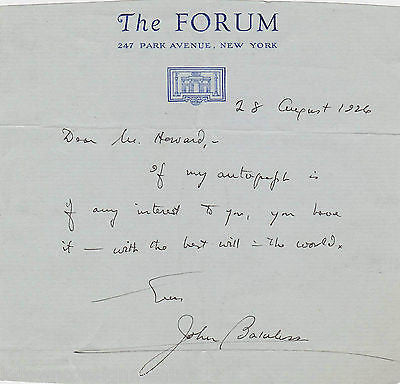 The FORUM
247 PARK AVENUE, NEW YORK
28 August 1926
Dear Mr. Howard,—
If my autograph is
of any interest to you, you have
it — with the best will in the world.
John Bakeless